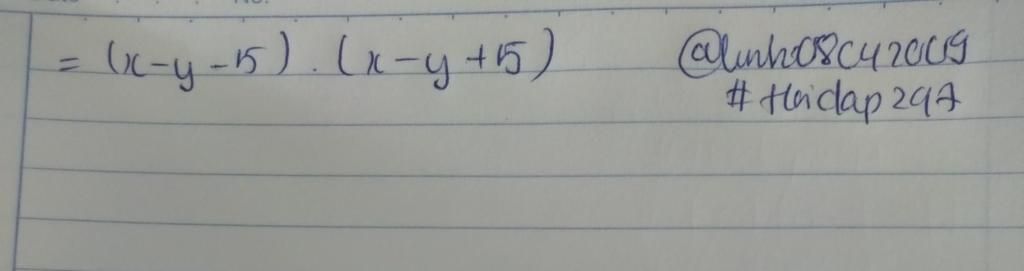 = (x-y-15) . (x-y+15)
@linh08042009
# Hoidap247